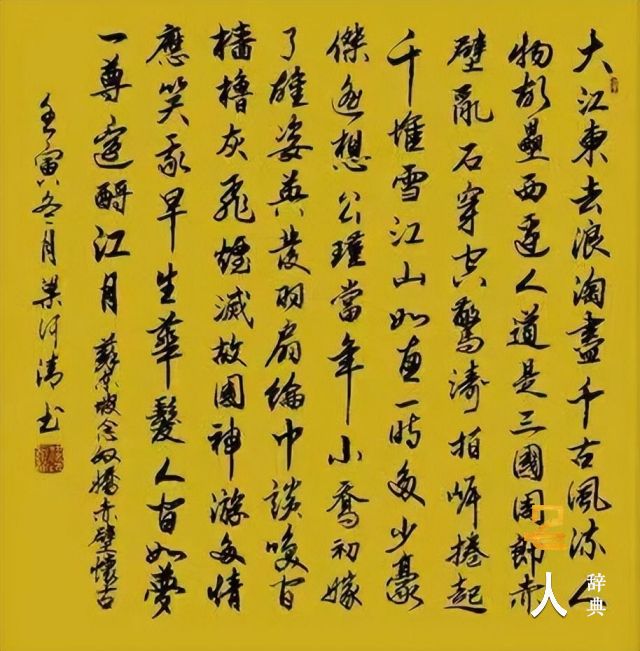 大江東去浪淘盡千古風流人
物故壘西邊人道是三國周郎赤
壁亂石穿空驚濤拍岸捲起
千堆雪江山如畫一時多少豪
傑遙想公瑾當年小喬初嫁
了雄姿英發羽扇綸巾談咲間
檣櫓灰飛煙滅故國神游多情
應笑我早生華髮人間如夢
一尊還酹江月 蘇東坡念奴嬌赤壁懷古
壬寅冬月梁河清书
人
辞典